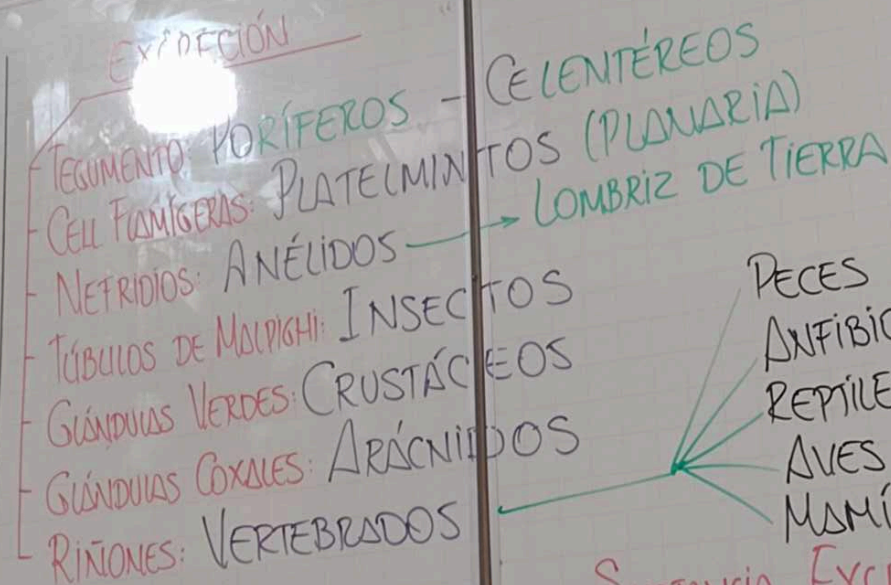 EXCRECIÓN
TEGUMENTO: PORÍFEROS - CELENTÉREOS
CELL FLAMÍGERAS: PLATELMINTOS (PLANARIA)
NEFRIDIOS: ANÉLIDOS → LOMBRIZ DE TIERRA
TÚBULOS DE MALPIGHI: INSECTOS
GLÁNDULAS VERDES: CRUSTÁCEOS
GLÁNDULAS COXALES: ARÁCNIDOS
RIÑONES: VERTEBRADOS
PECES
ANFIBIO
REPTILE
AVES
MAMÍ